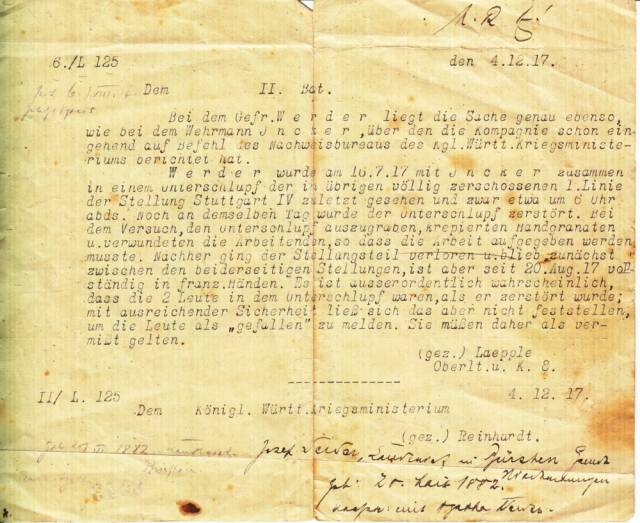 6./L 125 den 4.12.17.
Dem II. Bat.
Bei dem Gefr. Werder liegt die Sache genau ebenso,
wie bei dem Wehrmann Jncker, über den die Kompagnie schon ein-
gehend auf Befehl des Nachweisbureaus des Kgl. Württ. Kriegsministe-
riums berichtet hat.
Werder wurde am 16.7.17 mit Jncker zusammen
in einem Unterschlupf der im übrigen völlig zerschossenen 1. Linie
der Stellung Stuttgart IV zuletzt gesehen und zwar etwa um 6 Uhr
abds. Noch an demselben Tag wurde der Unterschlupf zerstört. Bei
dem Versuch, den Unterschlupf auszugraben, krepierten Handgranaten
u. verwundeten die Arbeitenden, so dass die Arbeit aufgegeben werden
musste. Nachher ging der Stellungsteil verloren u. blieb zunächst
zwischen den beiderseitigen Stellungen, ist aber seit 20. Aug. 17 voll-
ständig in franz. Händen. Es ist ausserordentlich wahrscheinlich,
dass die 2 Leute in dem Unterschlupf waren, als er zerstört wurde;
mit ausreichender Sicherheit ließ sich das aber nicht feststellen,
um die Leute als „gefallen" zu melden. Sie müßen daher als ver-
mißt gelten.
(gez.) Laepple
Oberlt. u. K. F.
II/ L. 125 4. 12. 17.
Dem Königl. Württ. Kriegsministerium
(gez.) Reinhardt.
Josef
geb: 20. 1882.